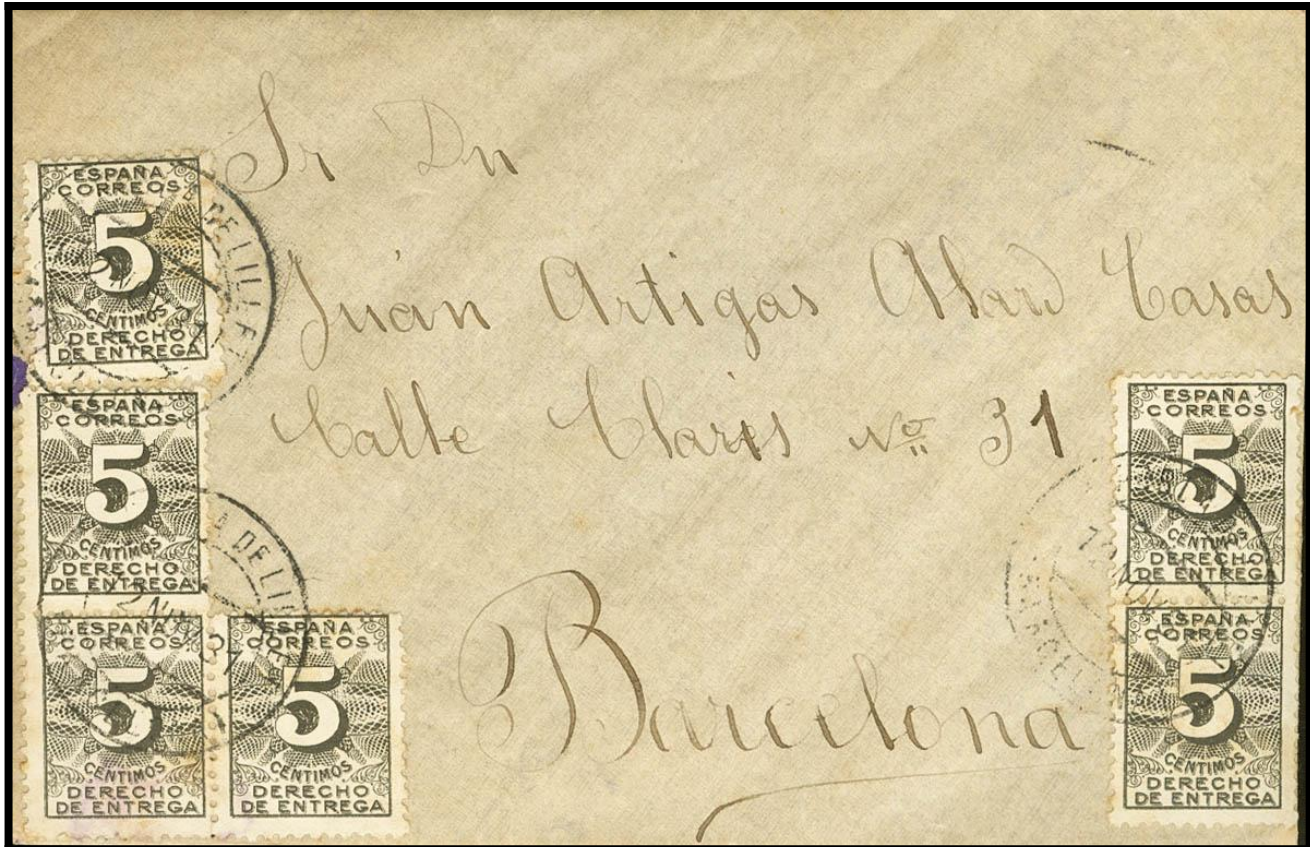 Sr Dn
Juán Artigas Alard Casas
Calle Claris Nº 31
Barcelona
ESPAÑA
CORREOS
5
CENTIMOS
DERECHO
DE ENTREGA
DE LILLET
ESPAÑA
CORREOS
5
CENTIMOS
DERECHO
DE ENTREGA
ESPAÑA
CORREOS
5
CENTIMOS
DERECHO
DE ENTREGA
ESPAÑA
CORREOS
5
CENTIMOS
DERECHO
DE ENTREGA
ESPAÑA
CORREOS
5
CENTIMOS
DERECHO
DE ENTREGA
ESPAÑA
CORREOS
5
CENTIMOS
DERECHO
DE ENTREGA